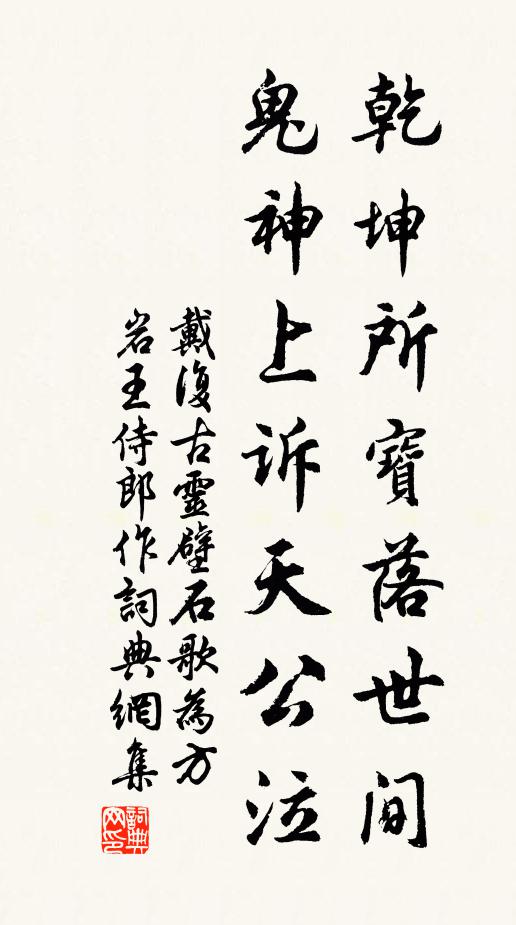 乾坤所寶落世间
鬼神上诉天公泣
戴復古靈壁石歌為方
岩王侍郎作詞典網集
詞典网印